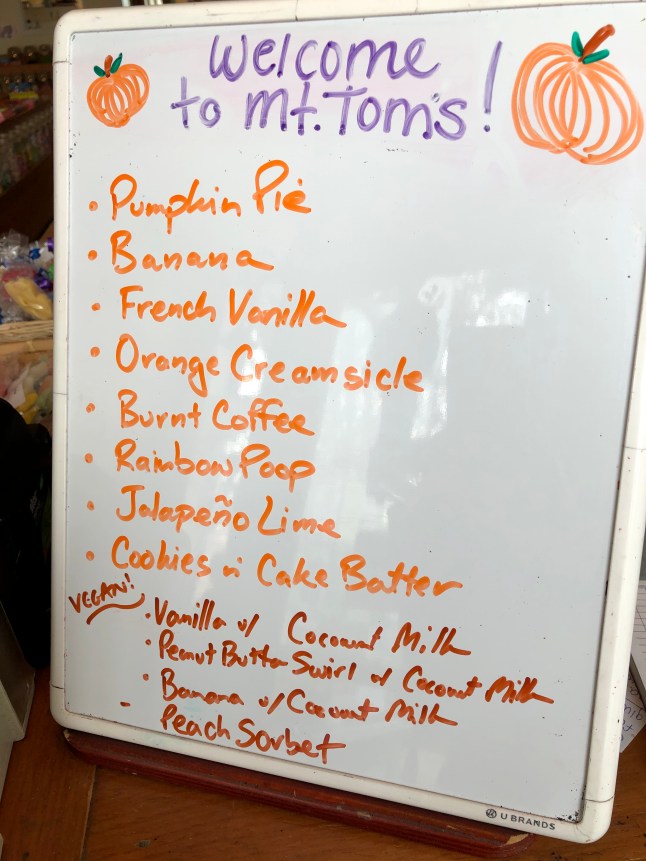 Welcome
to Mt. Tom's!
• Pumpkin Pie
• Banana
• French Vanilla
• Orange Creamsicle
• Burnt Coffee
• Rainbow Poop
• Jalapeño Lime
• Cookies n' Cake Batter
VEGAN!
• Vanilla w/ Coconut Milk
• Peanut Butter Swirl w/ Coconut Milk
• Banana w/ Coconut Milk
- Peach Sorbet
U BRANDS